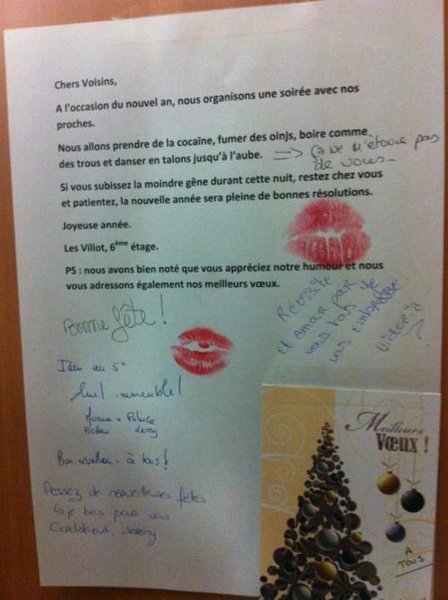 Chers Voisins,
A l'occasion du nouvel an, nous organisons une soirée avec nos
proches.
Nous allons prendre de la cocaïne, fumer des oinjs, boire comme
des trous et danser en talons jusqu'à l'aube. => ça ne m'étonne pas
de vous
Si vous subissez la moindre gêne durant cette nuit, restez chez vous
et patientez, la nouvelle année sera pleine de bonnes résolutions.
Joyeuse année.
Les Villot, 6ème étage.
PS : nous avons bien noté que vous appréciez notre humour et nous
vous adressons également nos meilleurs vœux.
Bonne fête !
Réussite
et Amour pour
vous tous je
vous embrasse
Idem au 5
immeuble !
Bon réveillon à tous !
Passez de merveilleuses fêtes
Meilleurs
Vœux !
A
TOUS